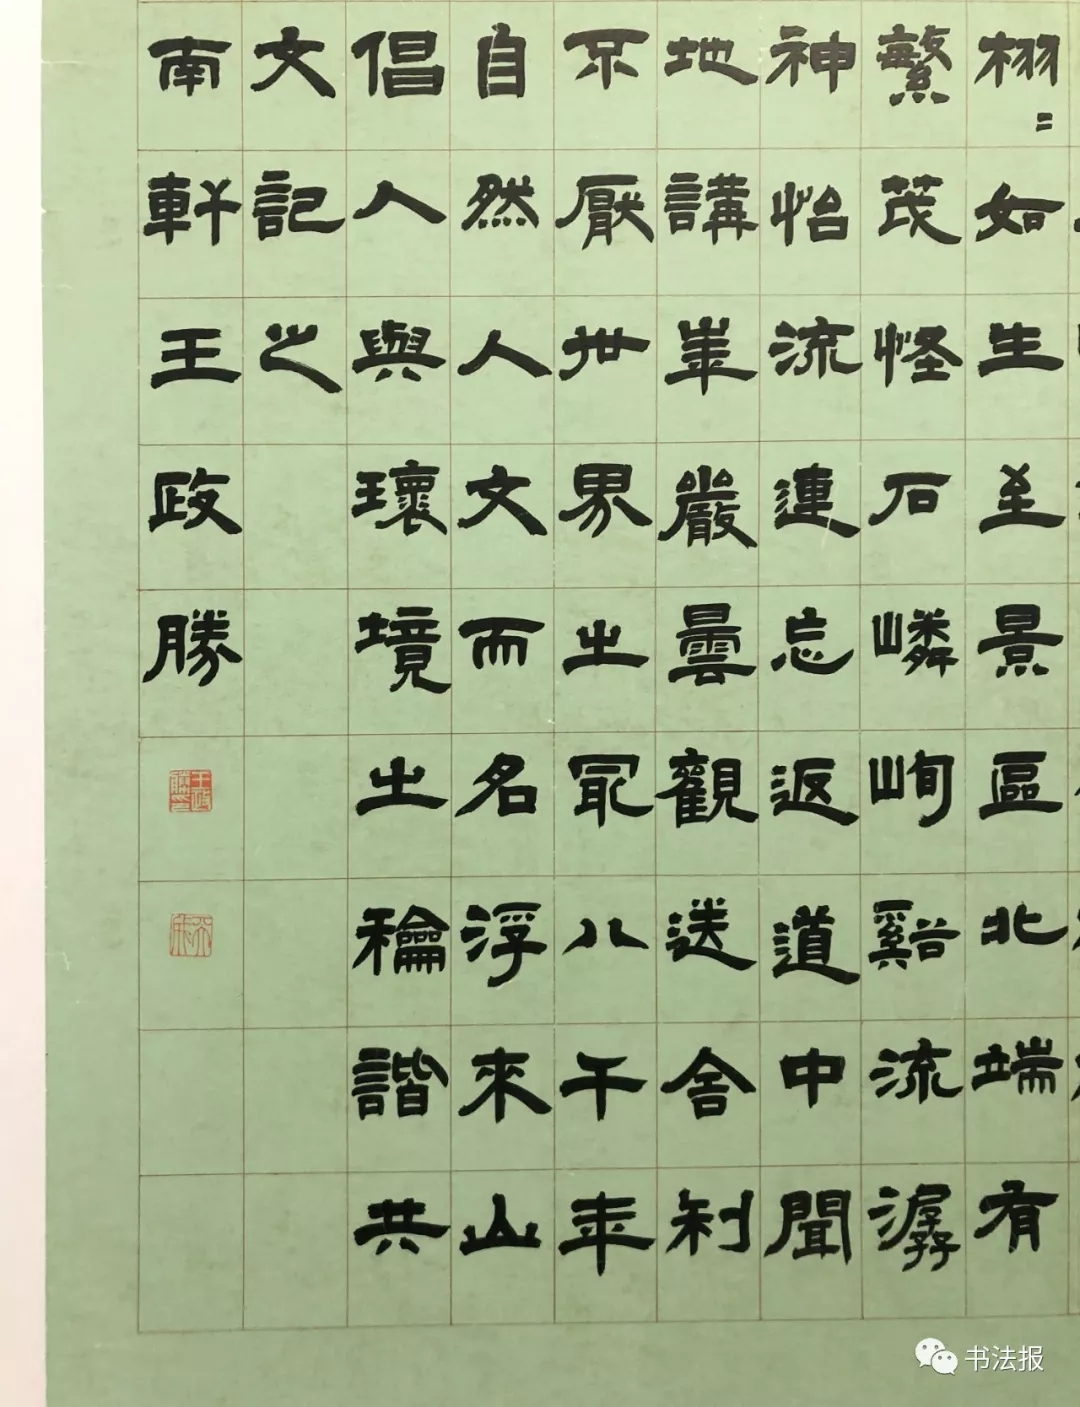 栩〻如生至景區北端有
繁茂怪石嶙峋谿流潺
神怡流連忘返道中聞
地講華嚴曇觀送舍利
不厭世界之冣八千年
自然人文而名浮來山
倡人與環境之龢諧共
文記之
南軒王政勝
王政勝印
书法报